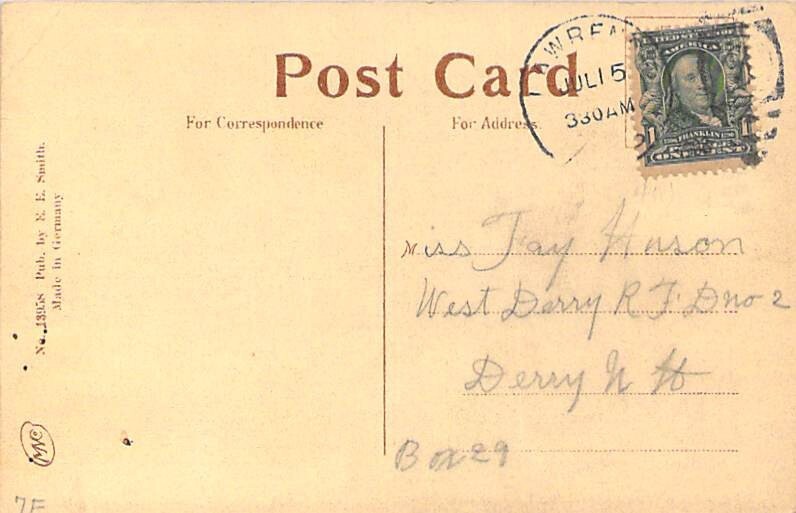 Post Card
For Correspondence
For Address.
LAWREN
JUL 15
330AM
UNITED STATES OF
AMERICA
1 FRANKLIN 1
ONE CENT
No. 13958 Pub. by E. E. Smith.
Made in Germany
Miss Fay Huson
West Derry R F D no 2
Derry N H
Box 29
7F